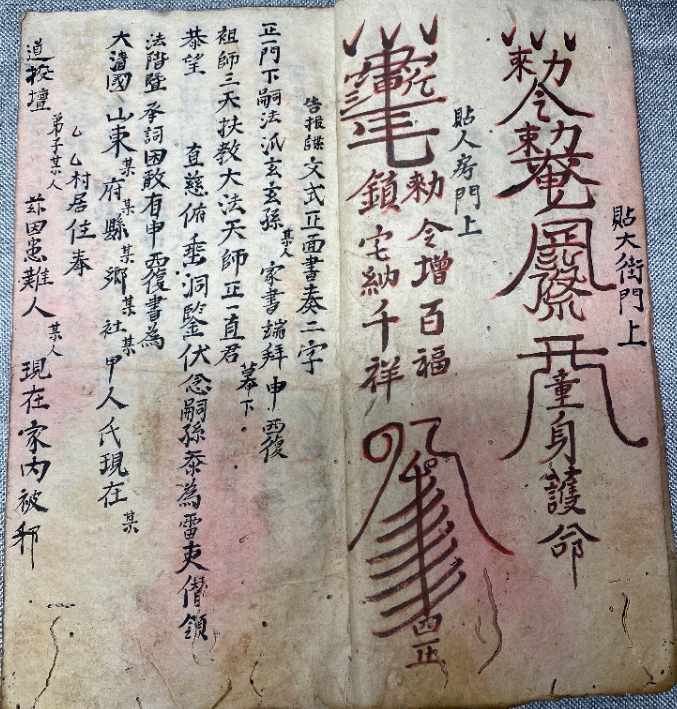 貼大街門上
勅令
童身護命
貼人房門上
勅令增百福
鎖宅納千祥
四正
告报牒文式正面書奏二字
正一門下嗣法派玄玄孫某人家書端拜申西復
祖師三天扶教大法天師正一直君幕下
恭望直慈俯垂洞鑒伏念嗣孫忝為雷吏僣領
法階暨承詞因敢有申西復書為
大清國山東某府某縣某鄉某社某甲人氏現在某
乙乙村居住奉
道投壇弟子某人兹因患難人某人現在家内被邪